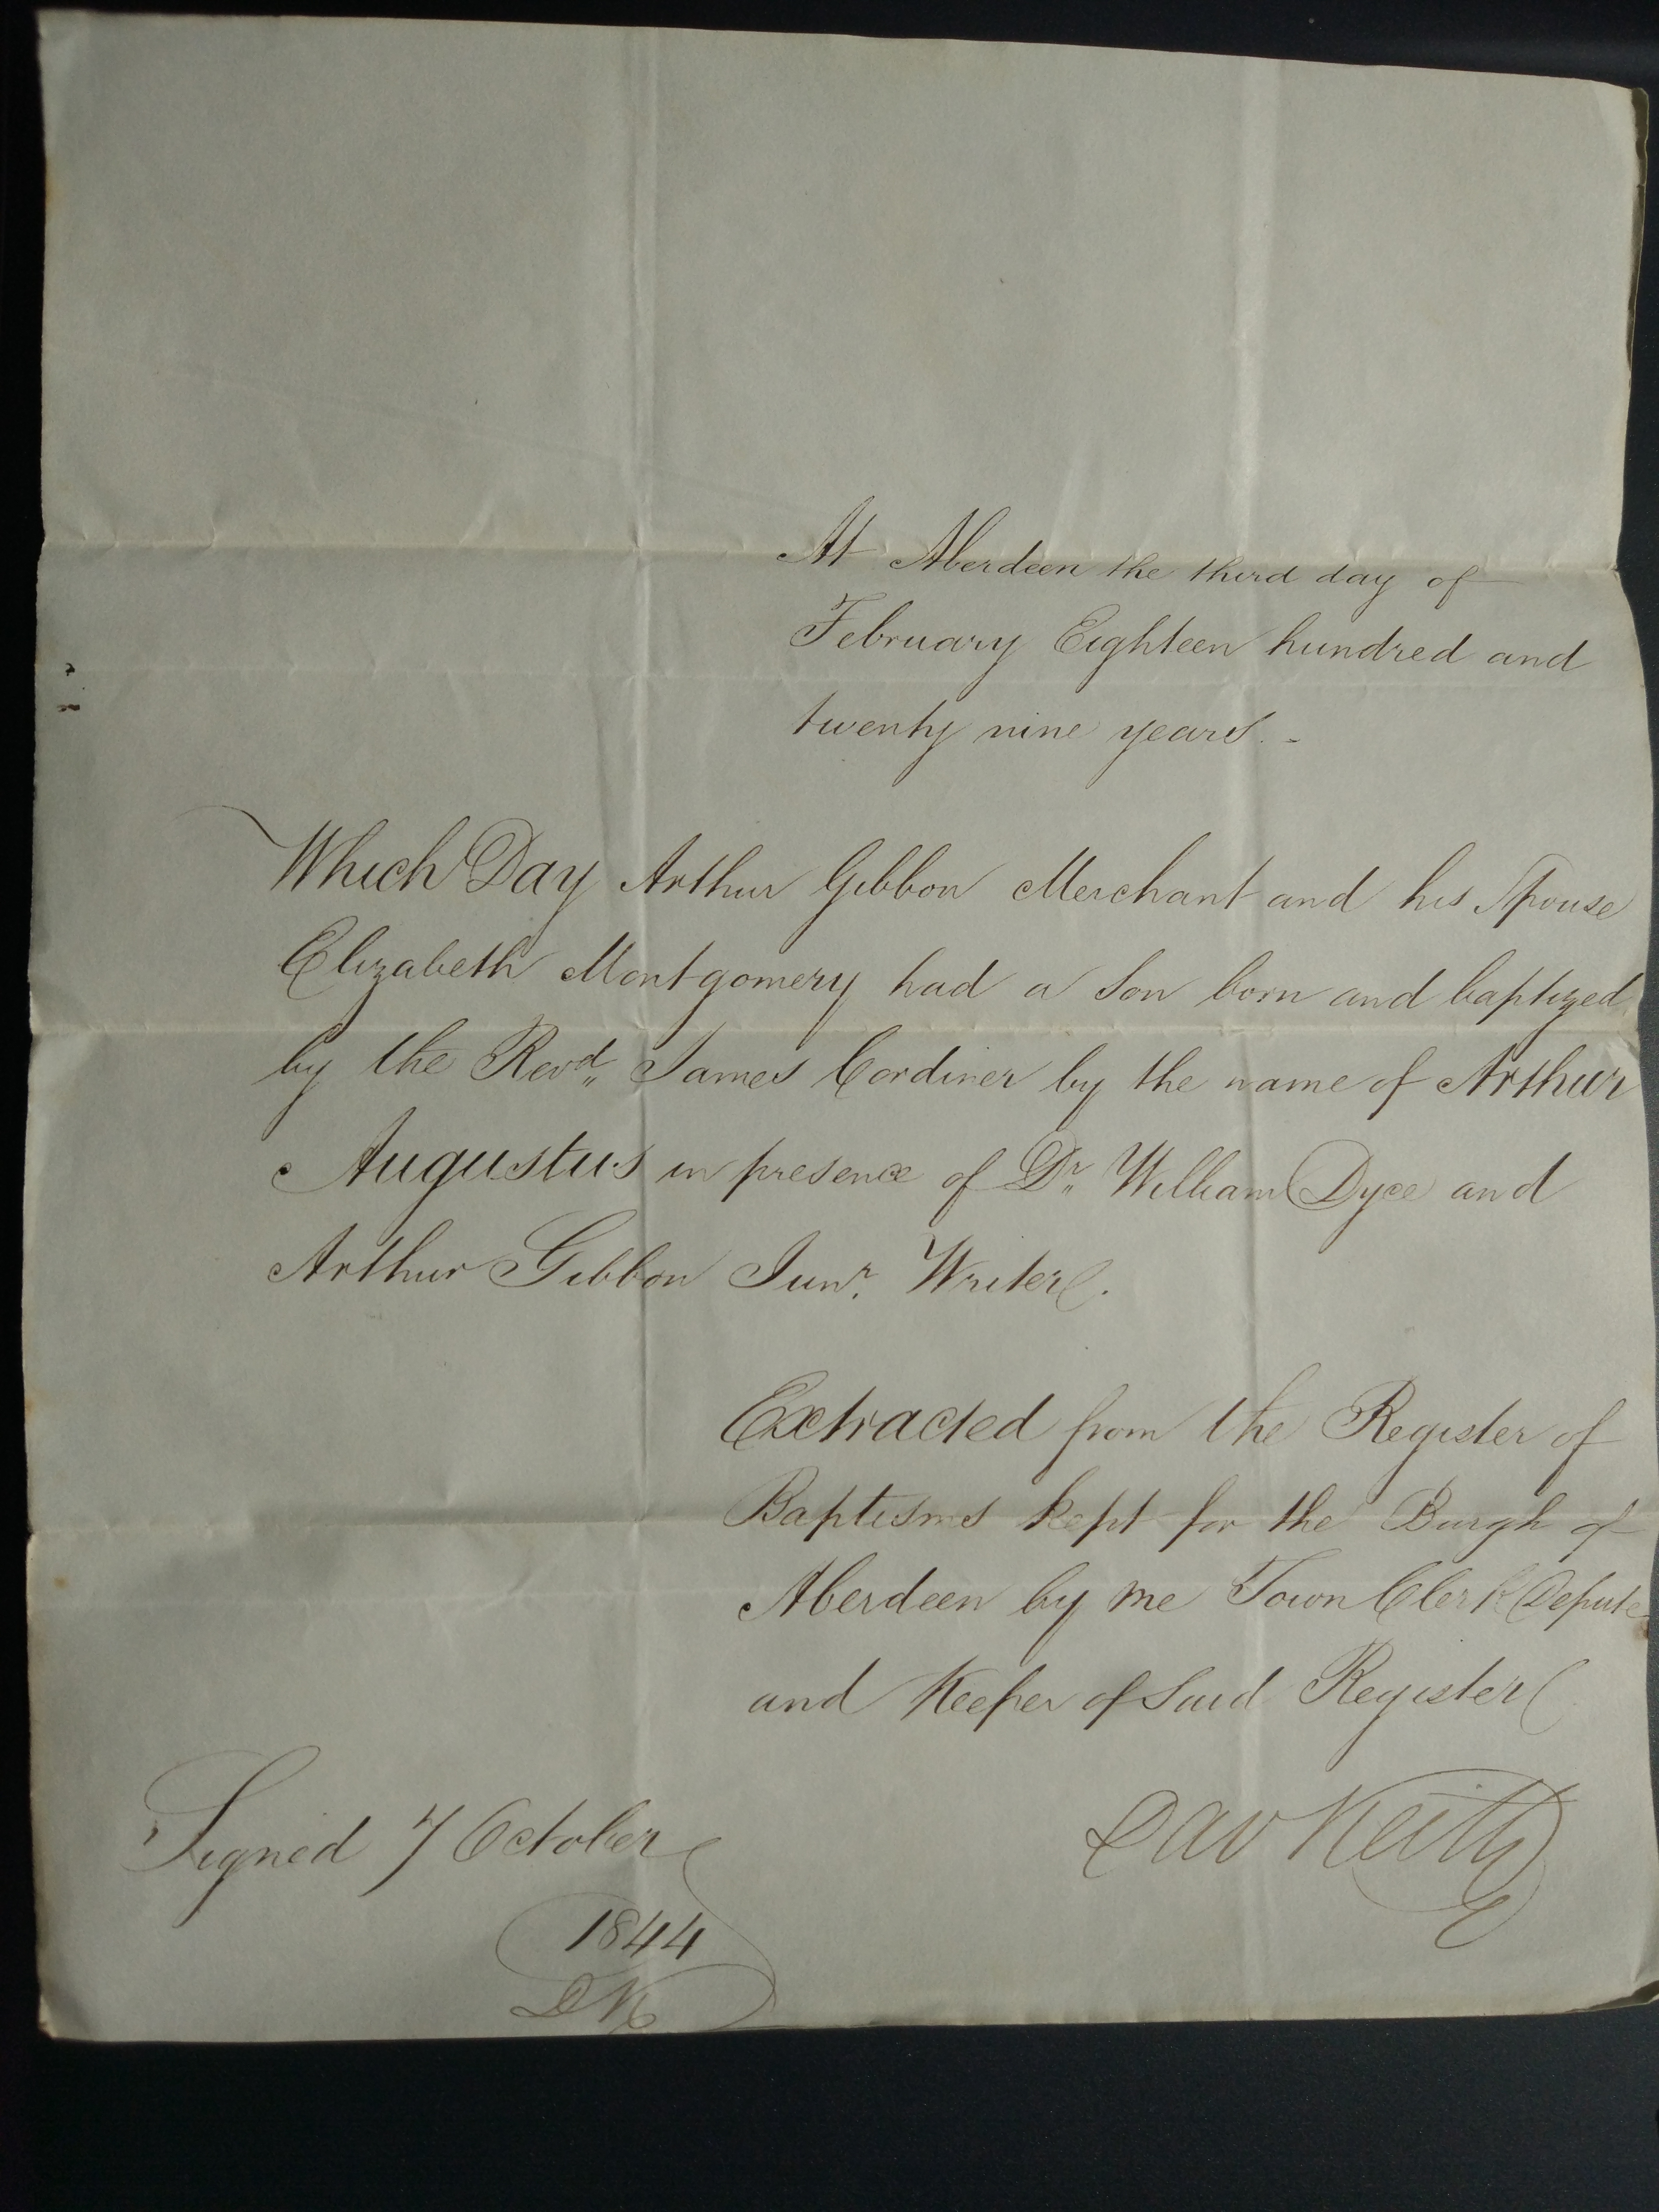 At Aberdeen the third day of
February Eighteen hundred and
twenty nine years. -
Which Day Arthur Gibbon Merchant and his Spouse
Elizabeth Montgomery had a Son born and baptized
by the Revd. James Cordiner by the name of Arthur
Augustus in presence of Dr. William Dyce and
Arthur Gibbon Junr. Writer.
Extracted from the Register of
Baptisms kept for the Burgh of
Aberdeen by me Town Clerk Depute
and Keeper of Said Register
Dav Keith
Signed 7 October
1844
DK